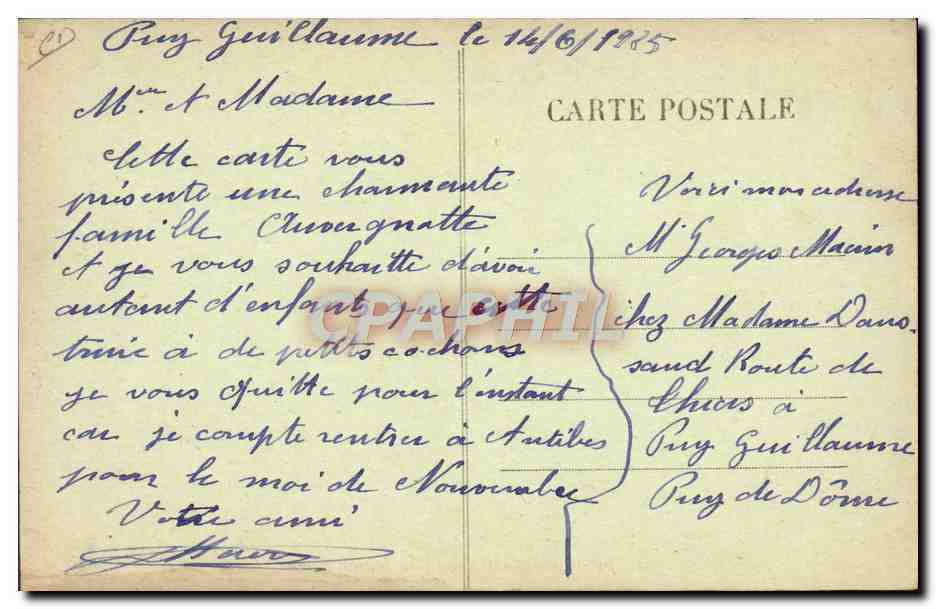 Puy Guillaume le 14/6/1925
Mr et Madame
CARTE POSTALE
Cette carte vous
présente une charmante
famille Auvergnatte
et je vous souhaitte d'avoir
autant d'enfants que cette
truie à de petits cochons
je vous Quitte pour l'instant
car je compte rentrer à Antibes
pour le moi de Nouvembre
Votre ami
Voici mon adresse
Mr Georges
chez Madame Daus-
saud Route de
à
Puy Guillaume
Puy de Dôme
CPAPHIL